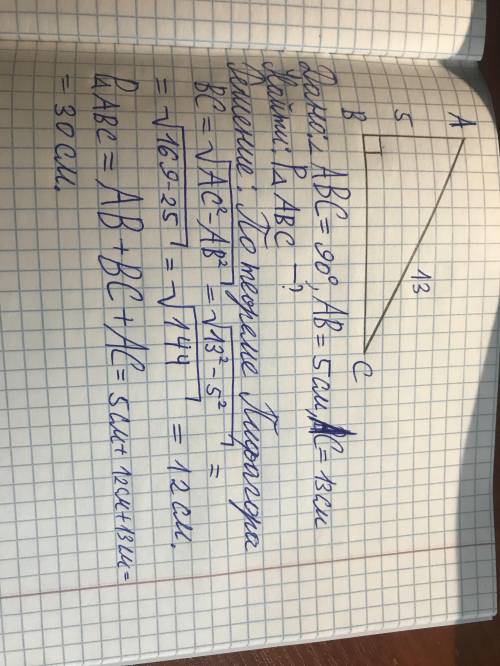 A
5
13
B
C
Дано: ∠ABC = 90°, AB = 5 см, AC = 13 см
Найти: P△ABC — ?
Решение: По теореме Пифагора
BC = √AC² - AB² = √13² - 5² =
= √169 - 25 = √144 = 12 см.
P△ABC = AB + BC + AC = 5 см + 12 см + 13 см =
= 30 см.